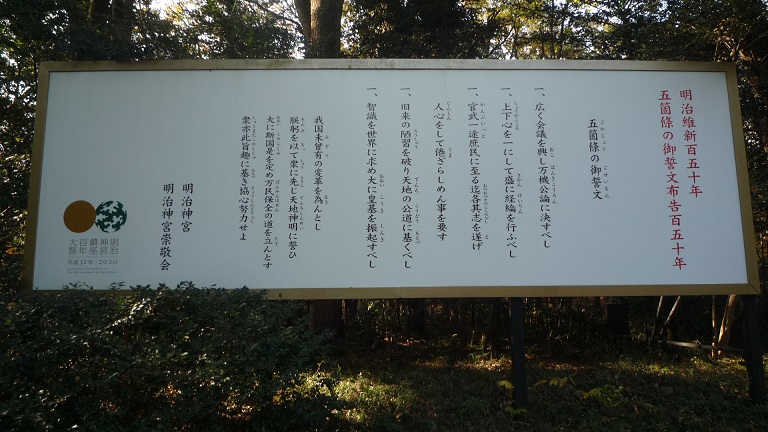 明治維新百五十年
五箇條の御誓文布告百五十年
五箇條の御誓文
一、広く会議を興し万機公論に決すべし
一、上下心を一にして盛に経綸を行ふべし
一、官武一途庶民に至る迄各其志を遂げ
人心をして倦ざらしめん事を要す
一、旧来の陋習を破り天地の公道に基くべし
一、智識を世界に求め大に皇基を振起すべし
我国未曾有の変革を為んとし
朕躬を以て衆に先じ天地神明に誓ひ
大に斯国是を定め万民保全の道を立んとす
衆亦此旨趣に基き協心努力せよ
明治神宮
明治神宮崇敬会
明治
神宮
鎮座
百年
大祭
平成32年 2020